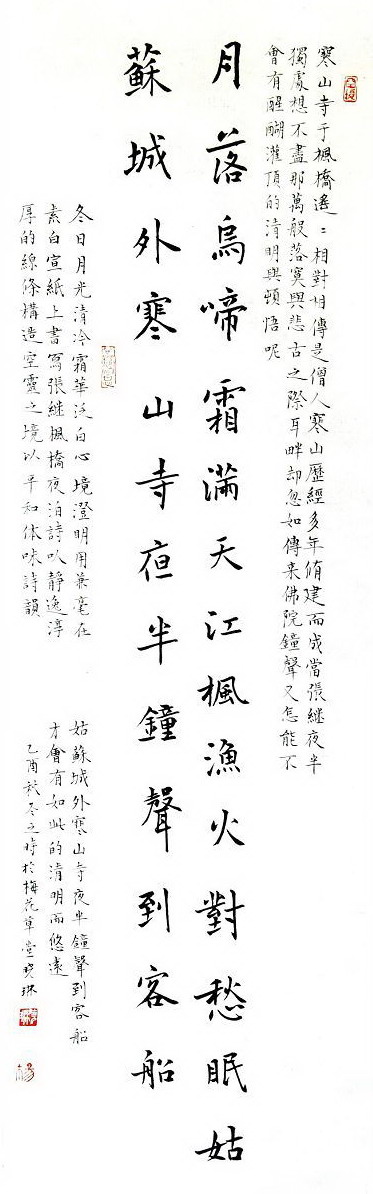 寒山寺于楓橋遙遙相對相傳是僧人寒山歷經多年脩建而成當張继夜半
獨處想不盡那萬般落寞與悲古之際耳畔却忽如傳来佛院鐘聲又怎能不
會有醒醐灌頂的清明與頓悟呢
月落烏啼霜滿天江楓漁火對愁眠姑
蘇城外寒山寺夜半鐘聲到客船
冬日月光清冷霜華泛白心境澄明用兼毫在
素白宣紙上書寫張继楓橋夜泊詩以静逸淳
厚的線條構造空靈之境以平和体味詩韻
姑蘇城外寒山寺夜半鐘聲到客船
才會有如此的清明而悠遠
乙酉秋冬之時於梅花草堂晓琳